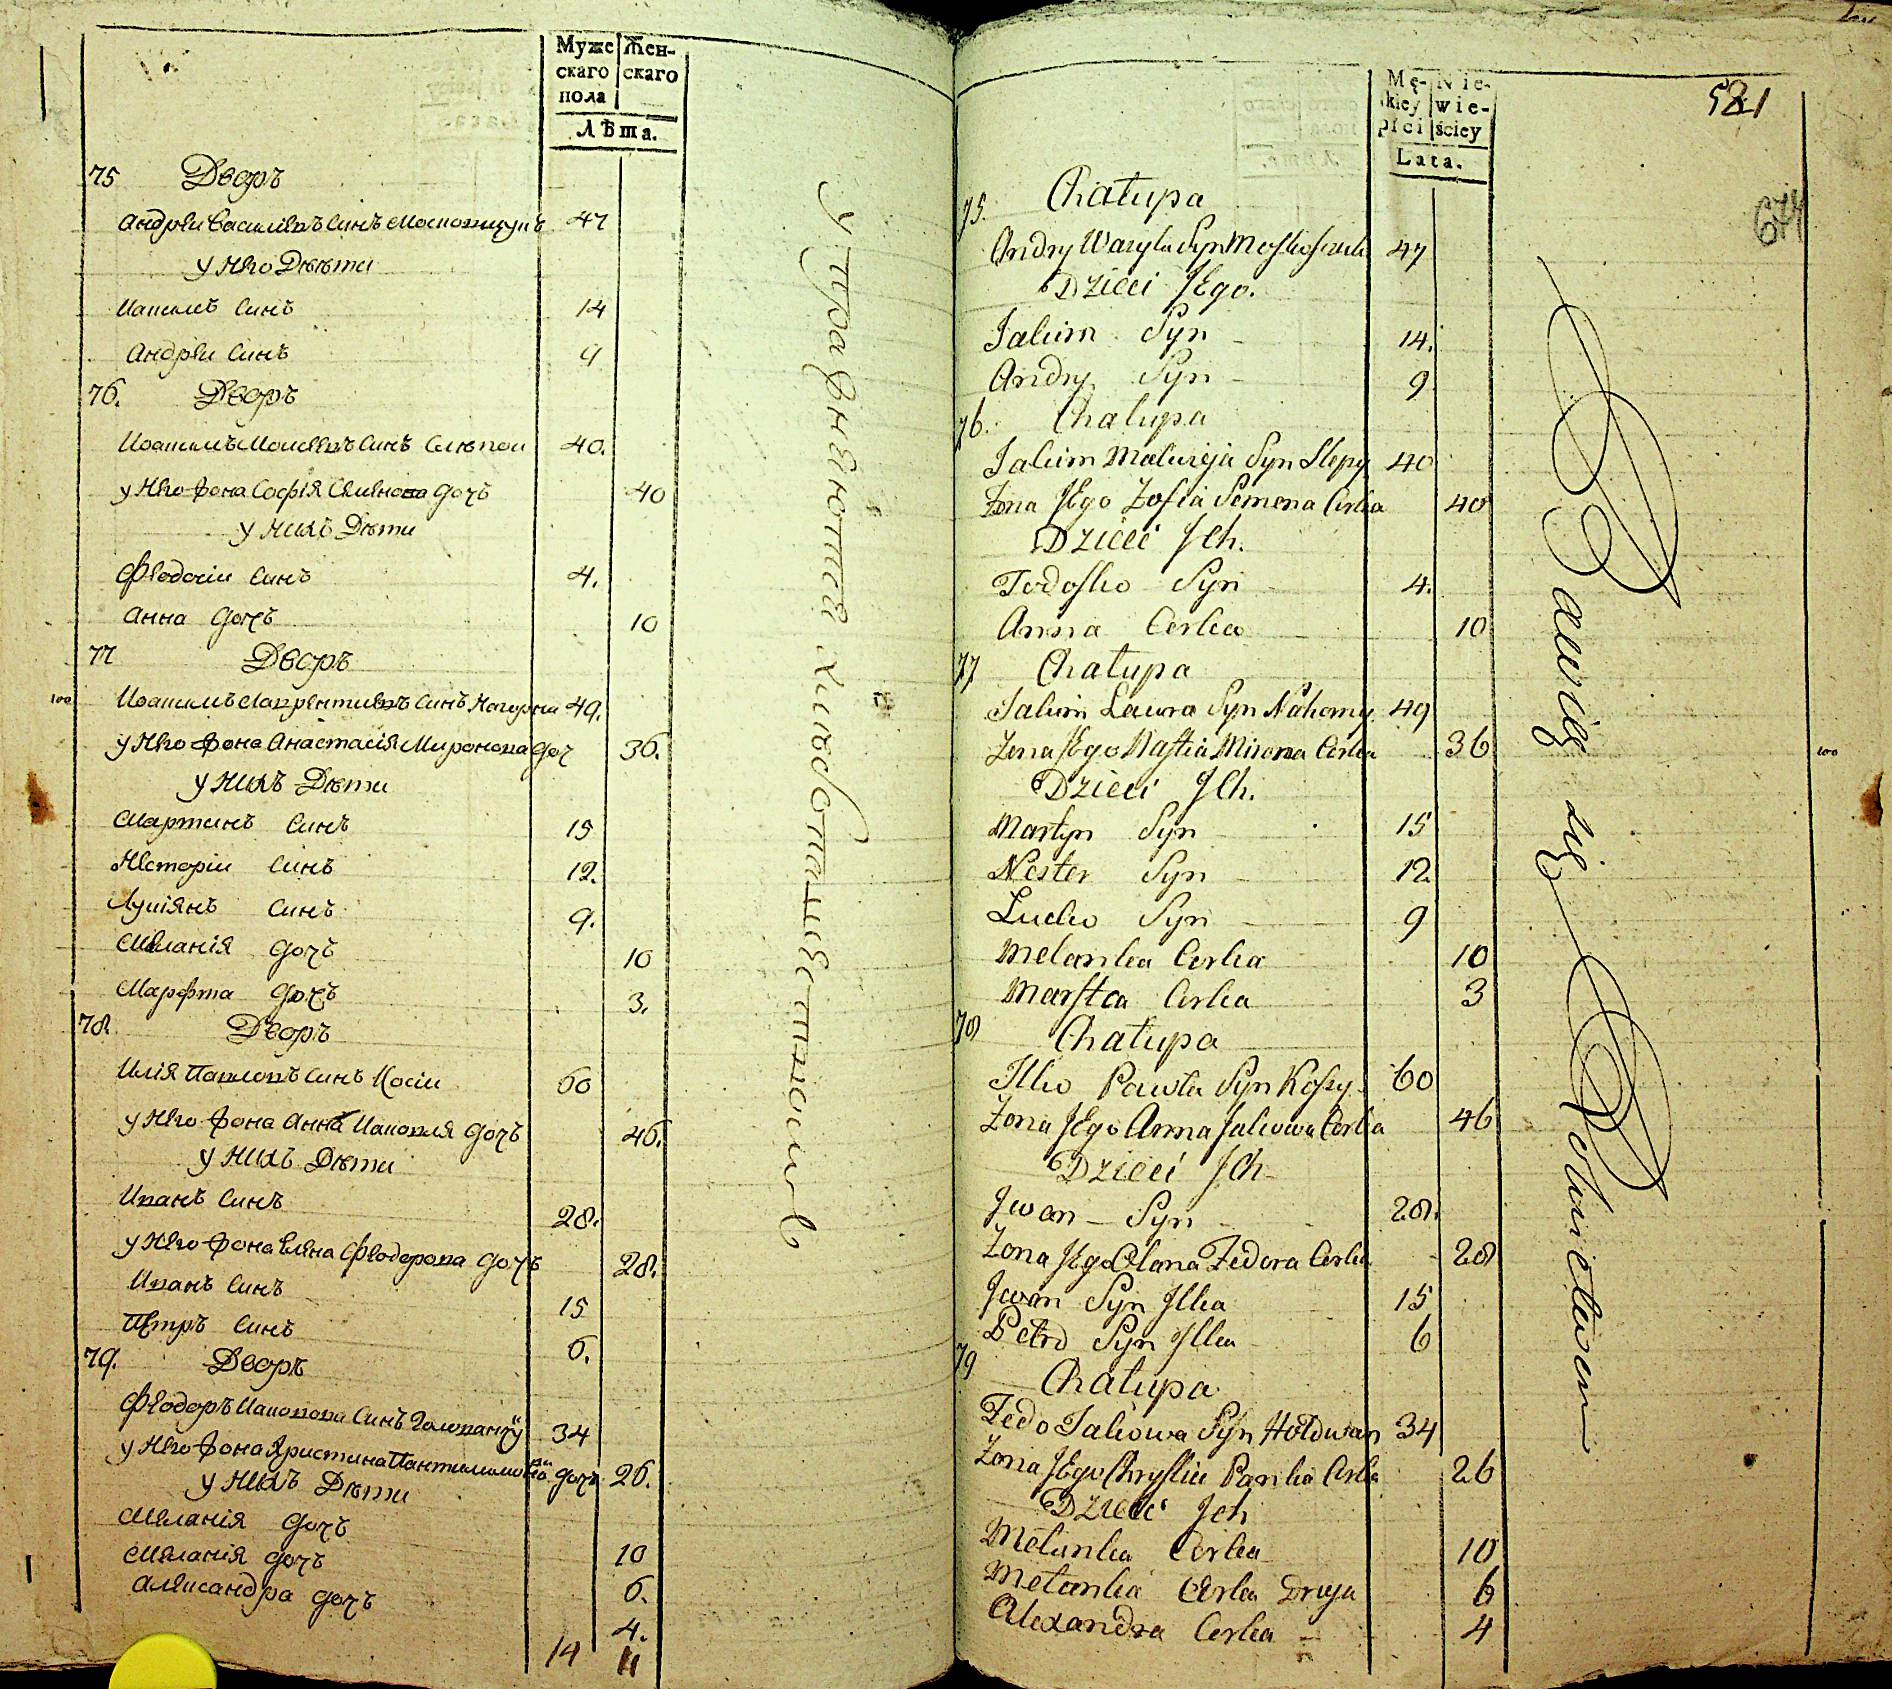 Муже
скаго
пола
Жен-
скаго
Лѣта.
75 Дворъ
Андрей Василіевъ Синъ 47
у Него Дѣти
Иакимъ Синъ 14
Андрѣи Синъ 9
76. Дворъ
Иоакимъ Моисѣевъ Синъ Слѣпои 40.
у Него жена Софія Семенова дочъ 40
у Нихъ Дѣти
Феодосіи Синъ 4.
Анна дочъ 10
77 Дворъ
100
Иоакимъ Лаврентиевъ Синъ Нагорни 49.
у Него жена Анастасія Миронова доч 36.
у Нихъ Дѣти
Мартинъ Синъ 15
Несторіи Синъ 12.
Лукіянъ Синъ 9.
Меланія дочъ 10
Марфта дочъ 3.
78. Дворъ
Илія Павловъ Синъ Косіи 60
у Него жена Анна Иаковля дочъ 46.
у Нихъ Дѣти
Иванъ Синъ 28.
у Него жена Елена Феодорова дочъ 28.
Иванъ Синъ 15
Петръ Синъ 6.
79. Дворъ
Феодоръ Иаковова Синъ 34
у Него жена Христина дочъ 26.
у Нихъ Дѣти
Меланія дочъ 10
Меланія дочъ 6.
Александра дочъ 4.
14 11
у
хлѣбопашествомъ
Mę-
skiey
płci
Nie-
wie-
ściey
Lata.
581
674
75. Chałupa
Andry Wasyla Syn 47
Dzieci Jego.
Jakim Syn 14.
Andry Syn 9
76. Chałupa
Jakim Syn Slepy 40
Żona Jego Zofia Semena Corka 40
Dzieci Jch.
Todosko Syn 4.
Anna Corka 10
77 Chałupa
Jakim Ławra Syn Nahorny 49
Żona Jego Nastia Mirona Corka 36
100
Dzieci Jch.
Martyn Syn 15
Nester Syn 12
Łucko Syn 9
Melanka Corka 10
Marftca Corka 3
78 Chałupa
Jlko Pawła Syn Koszy 60
Żona Jego Anna Jakowa Corka 46
Dzieci Jch
Jwan Syn 28.
Żona Jego Olena Fedora Corka 28
Jwan Syn Jlka 15
Petro Syn Jlka 6
79 Chałupa
Fedo Jakowa Syn Hołowan 34
Żona Jego Chrystia Pańka Corka 26
Dzieci Jch
Melanka Corka 10
Melanka Corka Druga 6
Alexandra Corka 4
Bawią się Rolnictwem